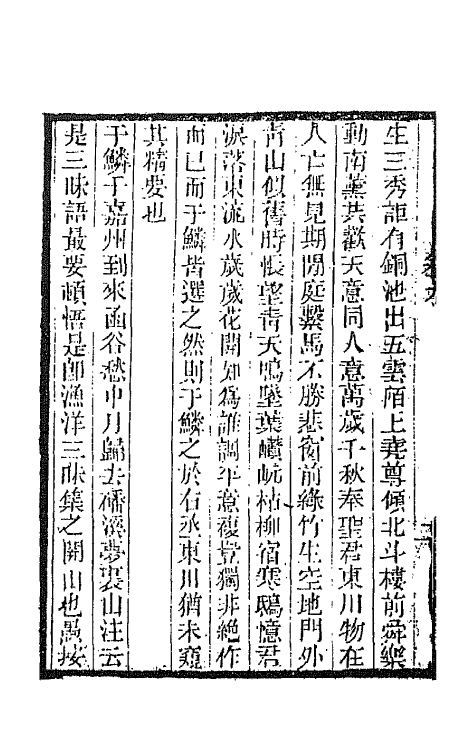 生三秀詎有銅池出五雲陌上堯尊傾北斗樓前舜樂
動南薰共歡天意同人意萬歲千秋奉聖君東川物在
人亡無見期閒庭繫馬不勝悲窗前綠竹生空地門外
青山似舊時悵望青天鳴墜葉巑岏枯柳宿寒鴟憶君
淚落東流水歲歲花開知爲誰調平意複豈獨非絶作
而已而于鱗皆選之然則于鱗之於右丞東川猶未窺
其精要也
于鱗于嘉州到來函谷愁中月歸去磻溪夢裏山注云
是三昧語最要頓悟是卽漁洋三昧集之開山也愚按